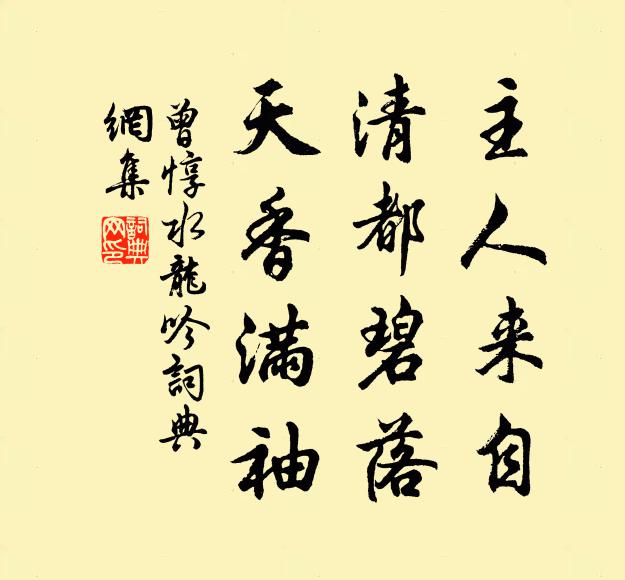 主人来自
清都碧落
天香满袖
曾惇水龍吟詞典
網集
詞典
网印